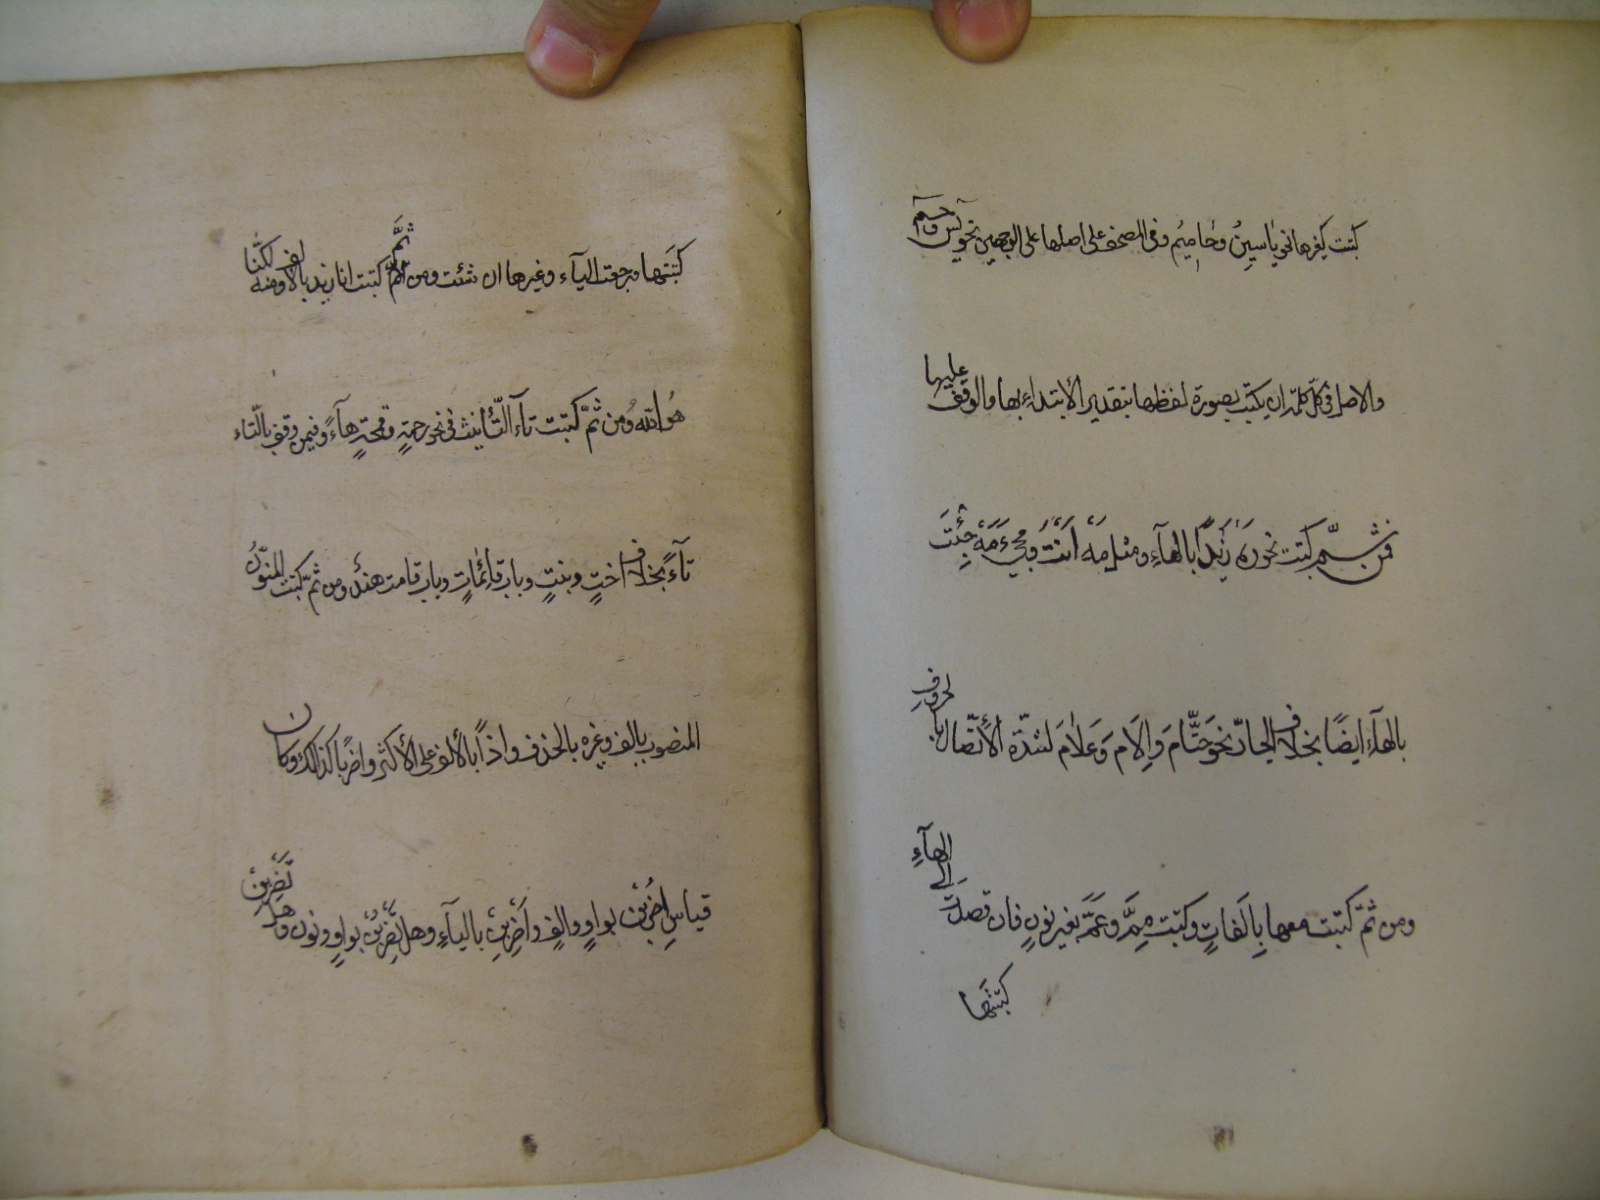 كتبت كغيرها نحو ياسين وحاميم وفى المصحف على اصلها على الوجهين نحو يٓس وحمٓ
والاصل فى كلّ كلمة ان يكتب بصورة لفظها بتقدير الابتداء بها والوقف عليها
فمن ثمّ كتبت نحو ره زيدًا بالهآءِ ومثل مه أنت ومجيء مه جئتَ
بالهآء ايضًا بخلاف الجارّ نحو حتّامَ وإلامَ وعلامَ لشدّة الأتّصال بالحروفِ
ومن ثمّ كتبت معها بألفاتٍ وكتبت ممَّ وعمَّ بغير نونٍ فان قصدتَ الى الهآءِ
كتبتَها
كتبتَها ورجعت اليآء وغيرها ان شئت ومن ثَمَّ كتبت انا زيد بالالف ومنه لكنّا
هو الله ومن ثَمّ كتبت تآء التّأنيث فى نحو رحمةٍ وقمحةٍ هآءً وفيمن وقف بالتّاء
تآءً بخلاف اختٍ وبنتٍ وباب قائماتٍ وباب قامت هندٌ ومن ثمّ كتبت المنوّنُ
المنصوب بالف وغيره بالحذف واذاً بالألف على الأكثر واضربًا كذالك وكان
قياس اضربُن بواوٍ والفٍ واضربِن باليآءِ وهل تضربُن بواوٍ ونون وهل تضربِن